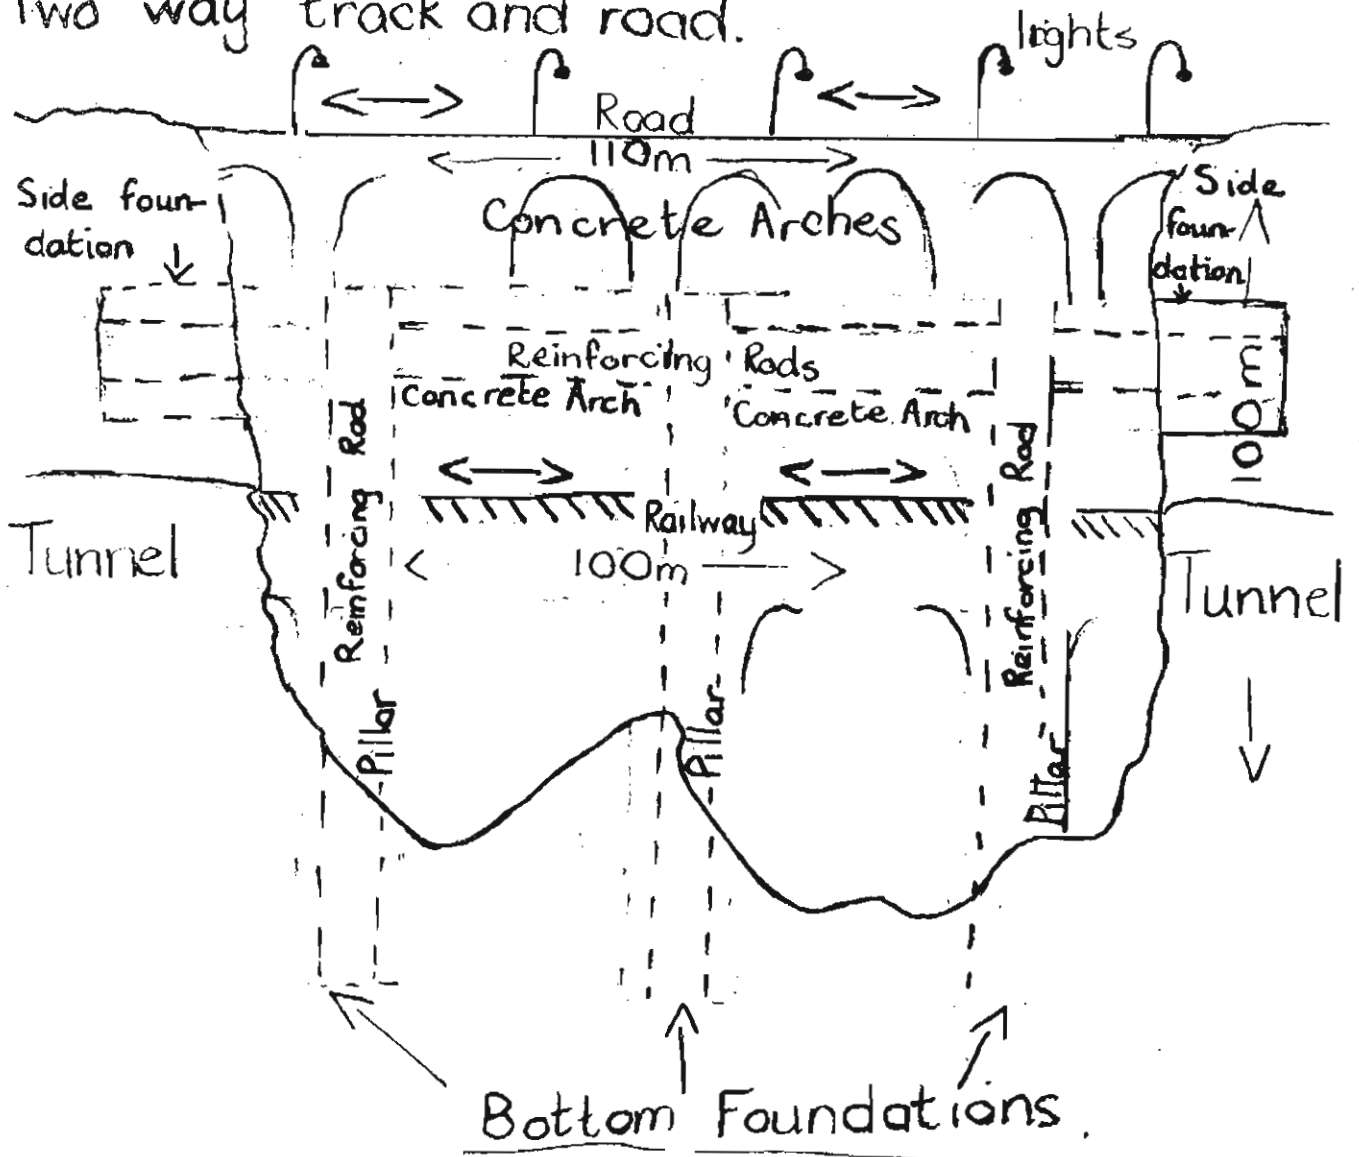 Two way track and road.
lights
Road
110m
Side foun-
dation
Side
foun-
dation
Concrete Arches
Reinforcing Rods
Concrete Arch
Concrete Arch
100m
Reinforcing Rod
Reinforcing Rod
Railway
Tunnel
100m
Tunnel
Pillar
Pillar
Pillar
Bottom Foundations.